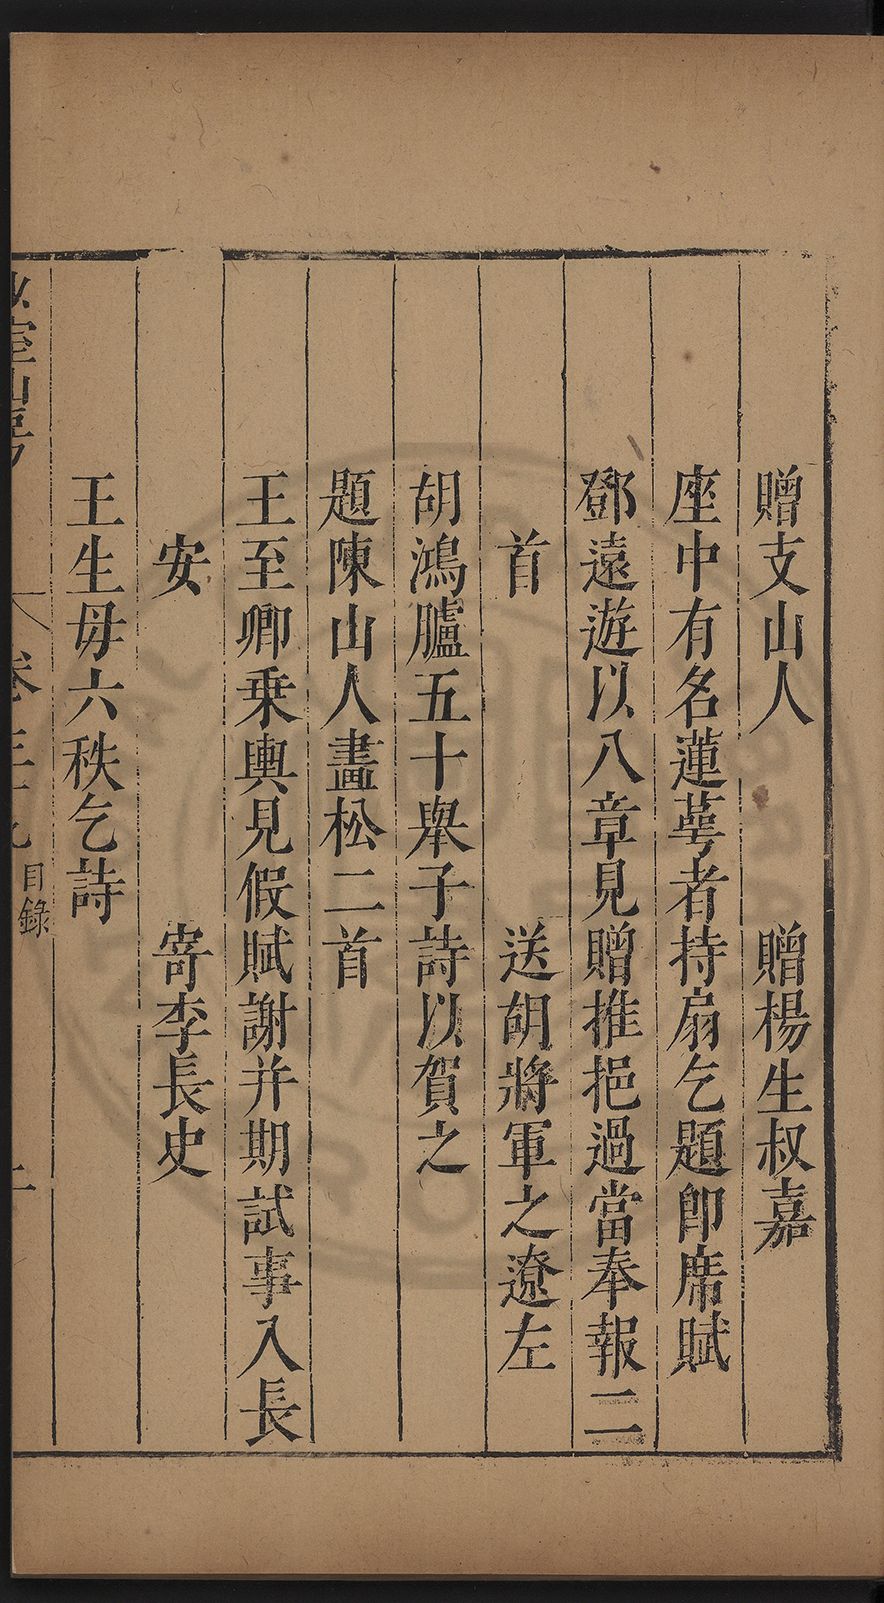 贈支山人　　　贈楊生叔嘉
座中有名蓮蕚者持扇乞題卽席賦
鄧遠遊以八章見贈推挹過當奉報二
首　　　　　送胡將軍之遼左
胡鴻臚五十舉子詩以賀之
題陳山人畵松二首
王至卿乗輿見假賦謝并期試事入長
安　　　　　寄李長史
王生毋六秩乞詩
目錄